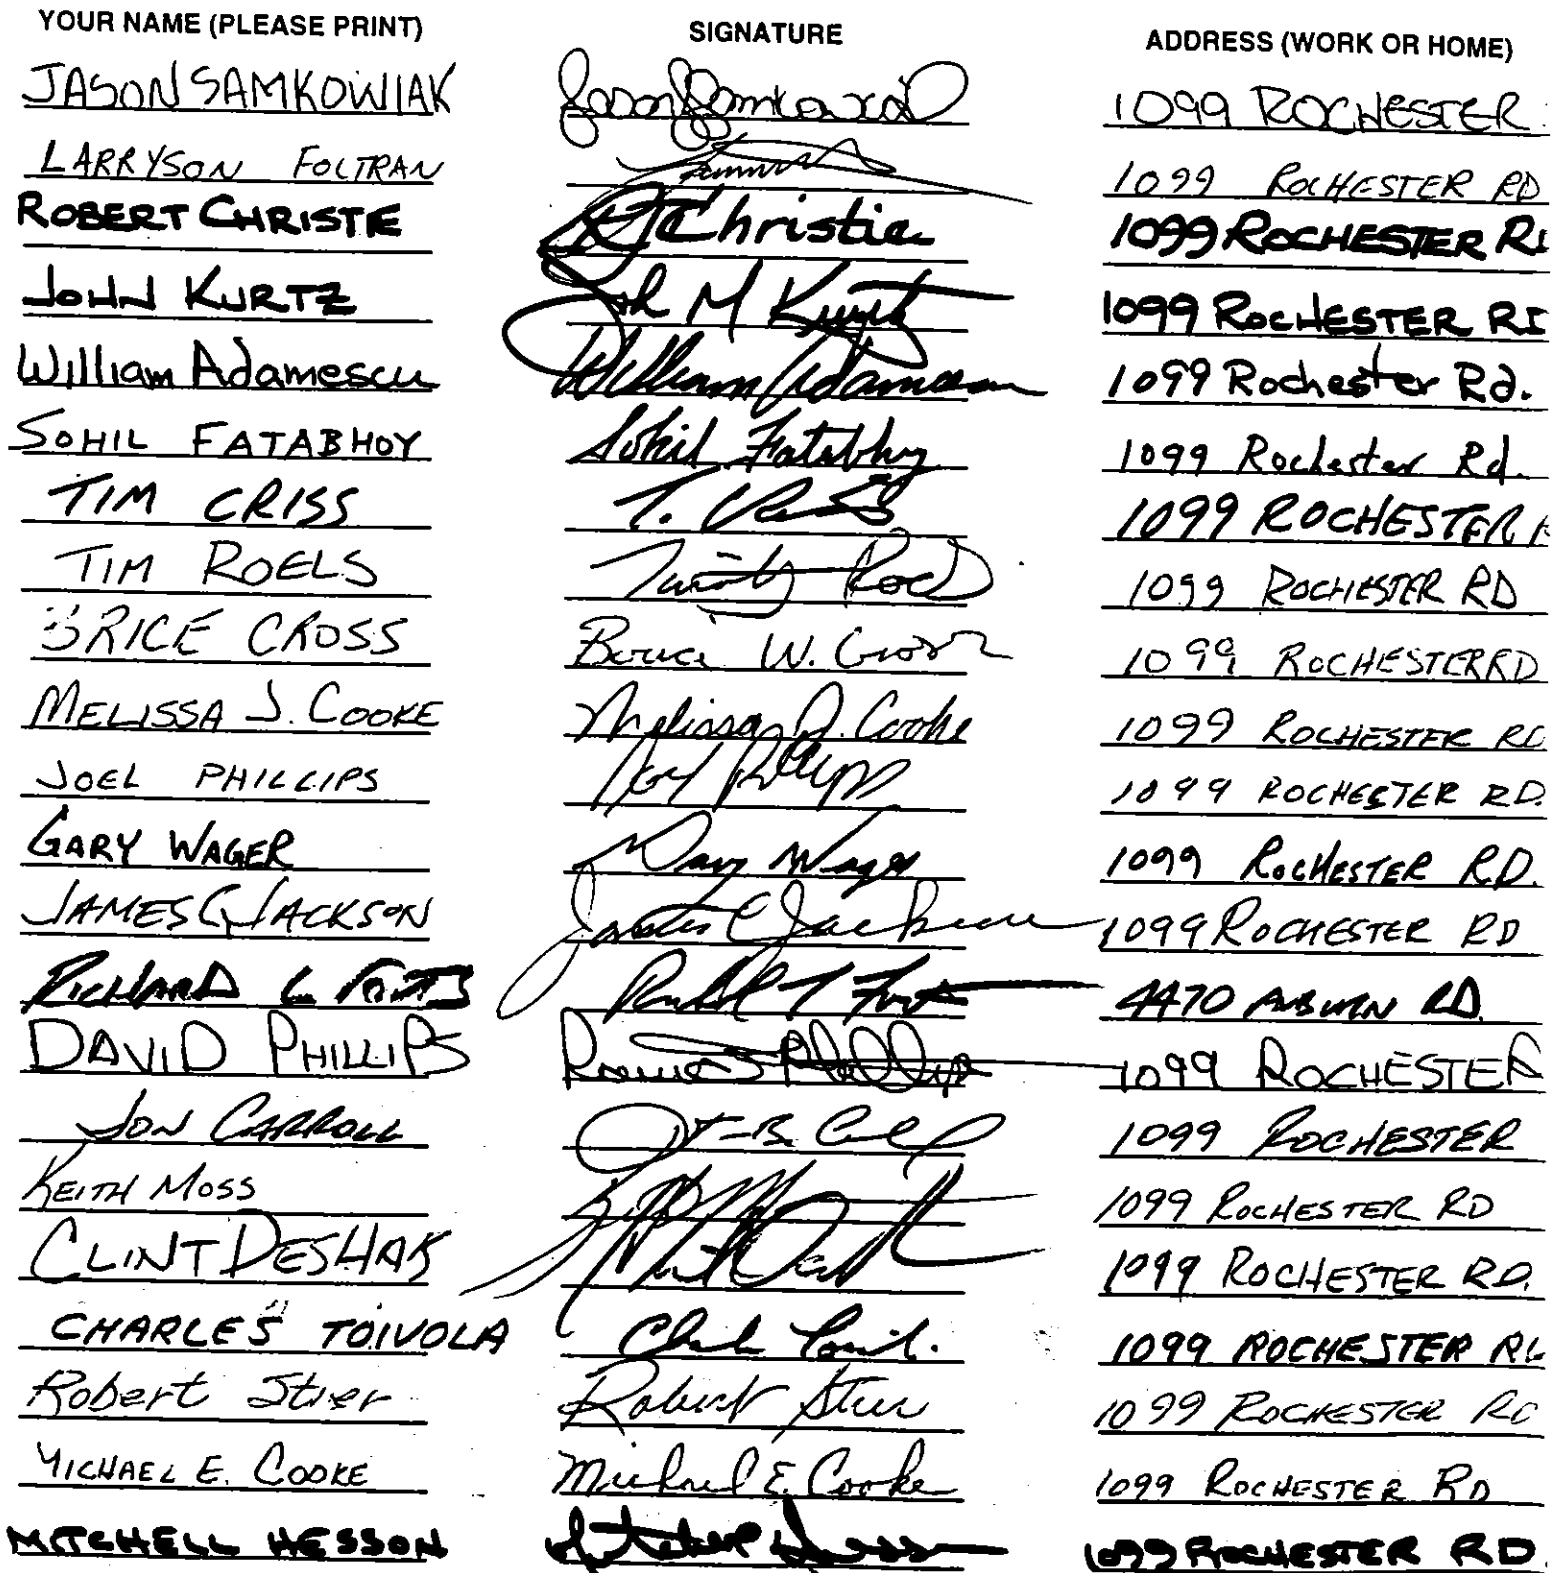 YOUR NAME (PLEASE PRINT) SIGNATURE ADDRESS (WORK OR HOME)
JASON SAMKOWIAK Jason Samkowiak 1099 ROCHESTER
LARRYSON FOLTRAN 1099 ROCHESTER RD
ROBERT CHRISTIE Christie 1099 ROCHESTER
JOHN KURTZ M Kurtz 1099 ROCHESTER
William Adamescu William Adamescu 1099 Rochester Rd.
SOHIL FATABHOY Sohil Fatabhoy 1099 Rochester Rd.
TIM CRISS T. Criss 1099 ROCHESTER
TIM ROELS 1099 ROCHESTER RD
BRICE CROSS W. Cross 1099 ROCHESTER RD
MELISSA J. COOKE Melissa J. Cooke 1099 ROCHESTER RD
JOEL PHILLIPS Joel Phillips 1099 ROCHESTER RD.
GARY WAGER Gary Wager 1099 ROCHESTER RD.
JAMES C JACKSON James C Jackson 1099 ROCHESTER RD
RICHARD L 4470 AUBURN RD.
DAVID PHILLIPS Phillips 1099 ROCHESTER
JON CARROLL 1099 ROCHESTER
KEITH MOSS 1099 ROCHESTER RD
CLINT DESHAK 1099 ROCHESTER RD.
CHARLES TOIVOLA 1099 ROCHESTER
Robert Stier Robert Stier 1099 ROCHESTER
MICHAEL E. COOKE Michael E. Cooke 1099 ROCHESTER RD
MITCHELL HESSON Hesson 1099 ROCHESTER RD